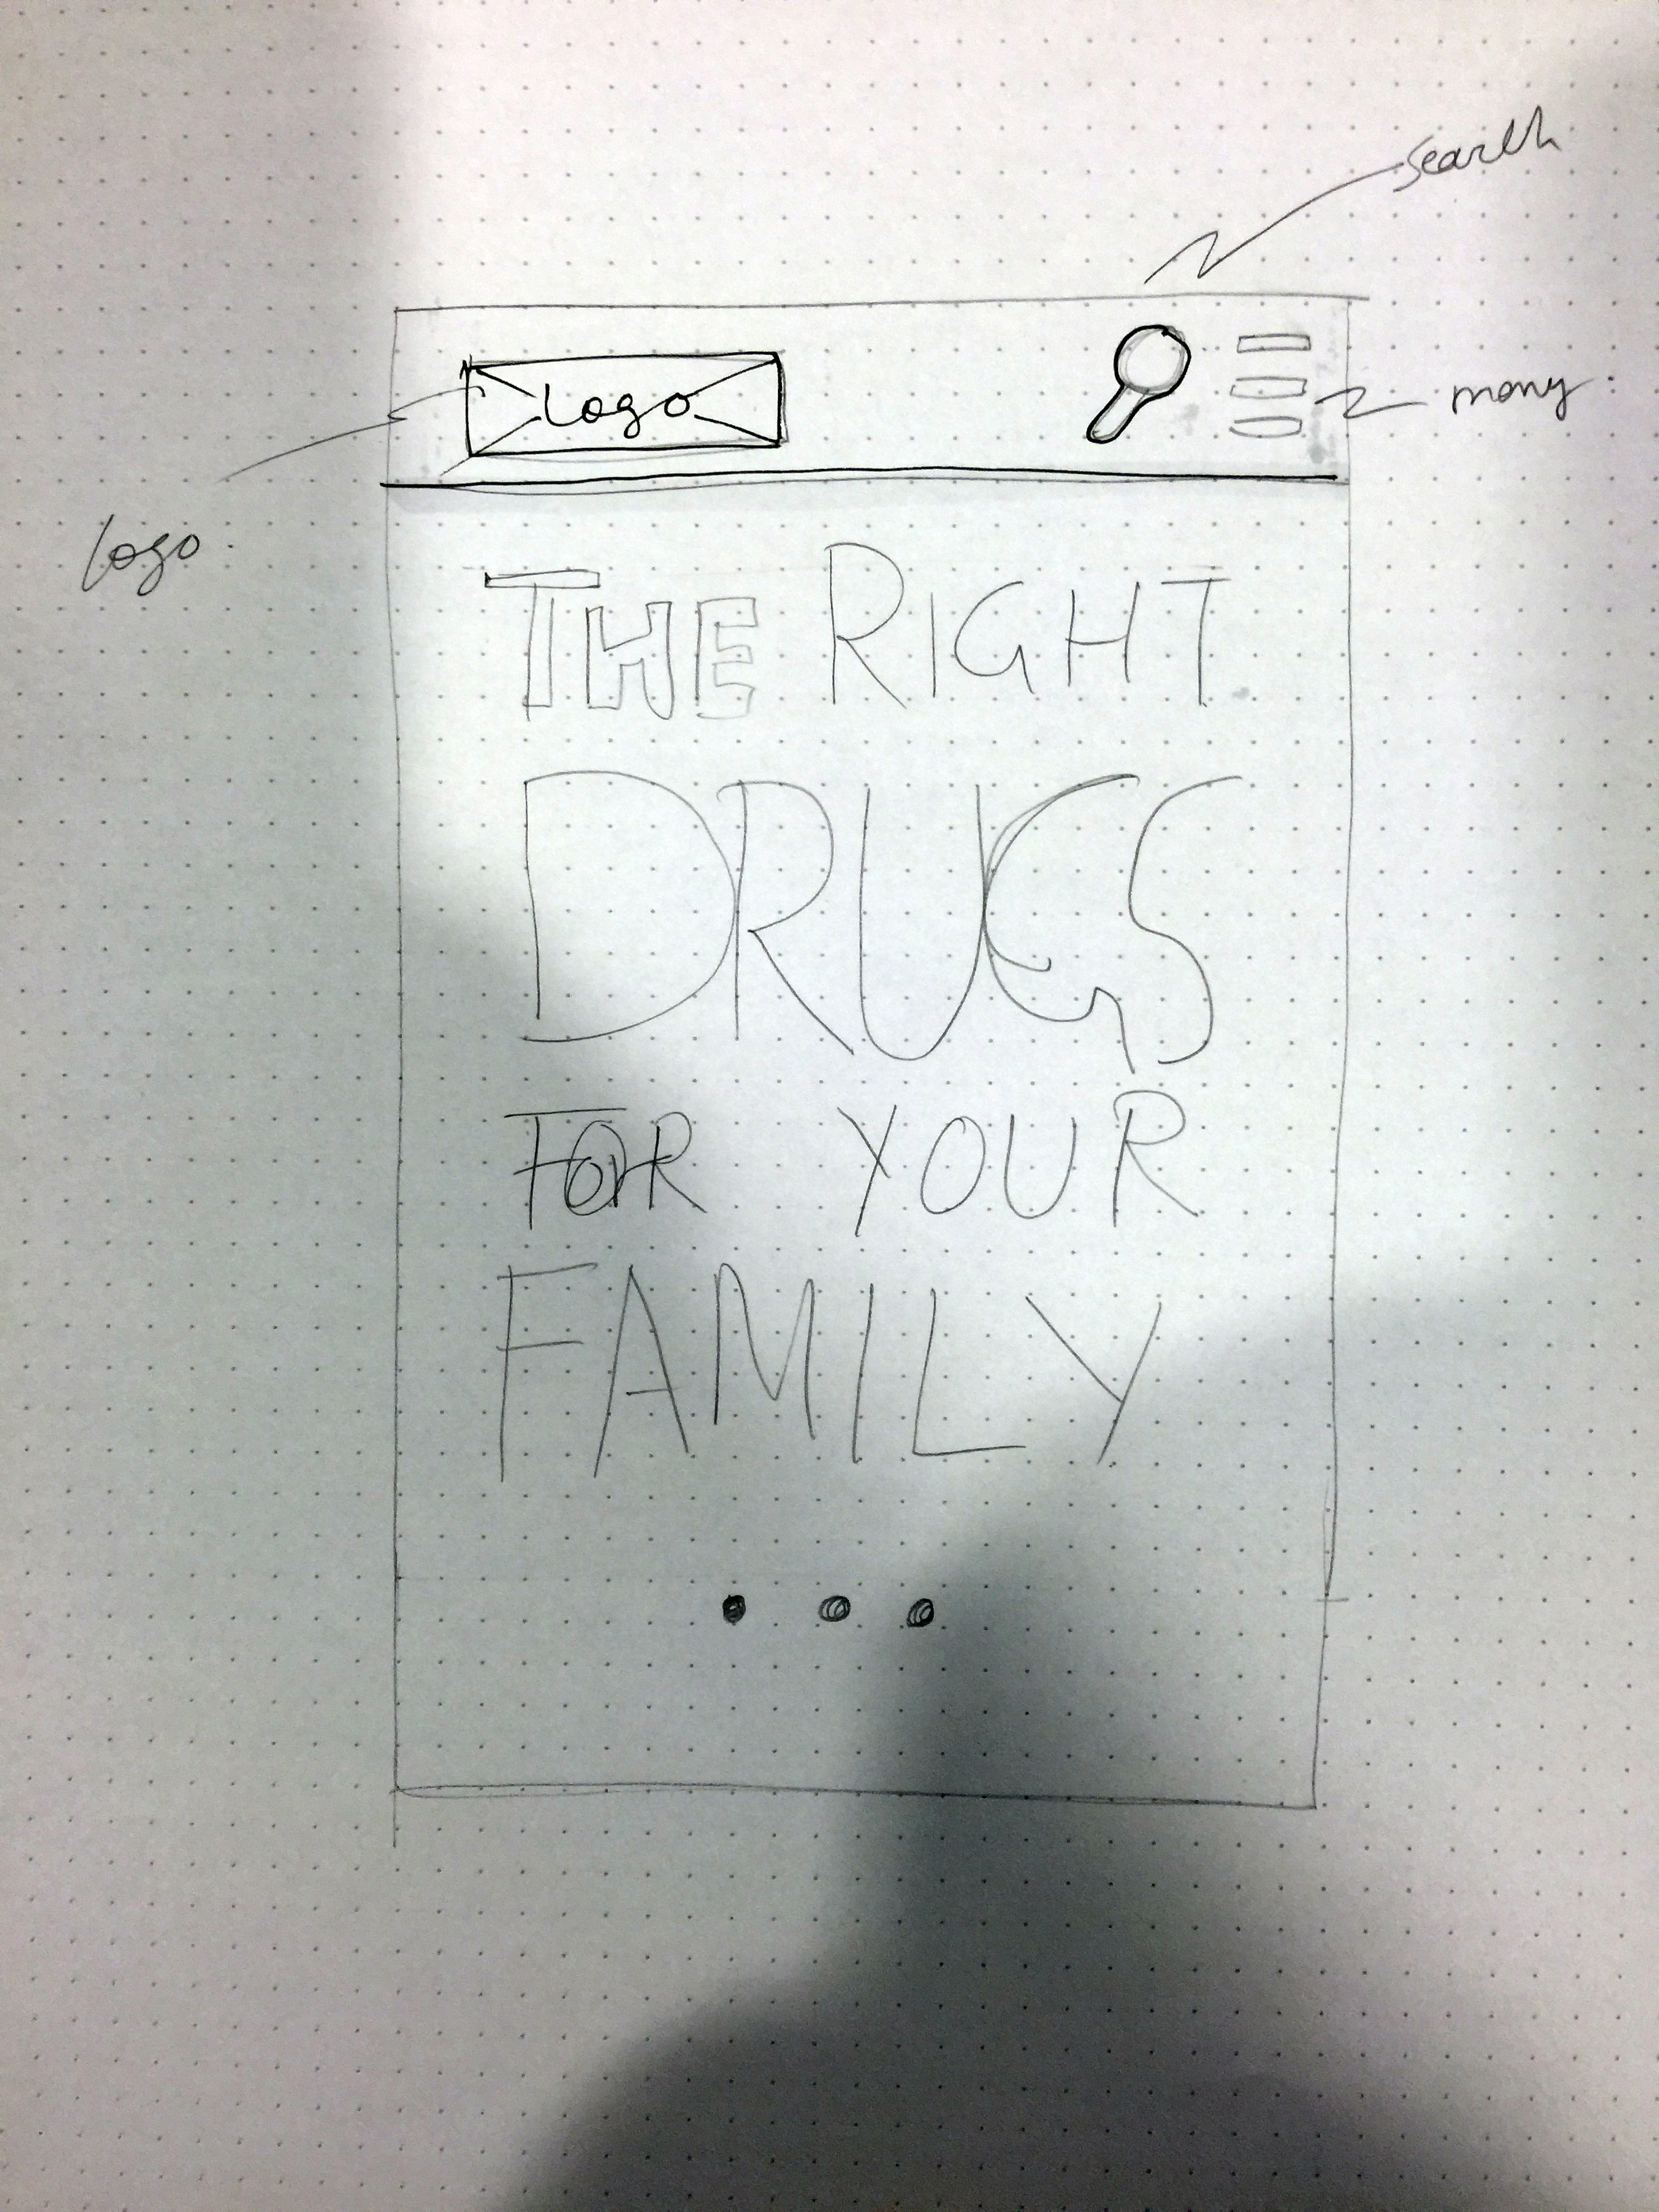 search
Logo
many
logo
THE RIGHT
DRUGS
FOR YOUR
FAMILY